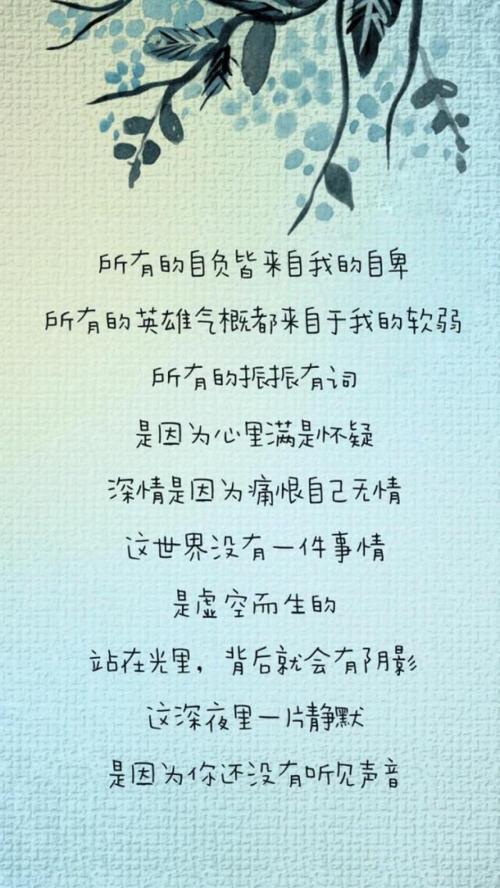 所有的自负皆来自我的自卑
所有的英雄气概都来自于我的软弱
所有的振振有词
是因为心里满是怀疑
深情是因为痛恨自己无情
这世界没有一件事情
是虚空而生的
站在光里，背后就会有阴影
这深夜里一片静默
是因为你还没有听见声音